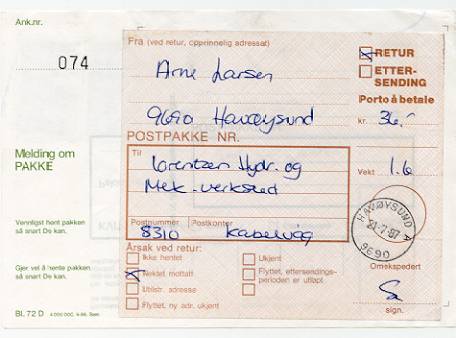 Ank.nr.
074
Melding om
PAKKE
Vennligst hent pakken
så snart De kan.
Gjer vel å hente pakken
så snart De kan.
Bl. 72 D
Fra (ved retur, opprinnelig adressat)
Arne Larsen
9690 Havøysund
RETUR
ETTER-
SENDING
Porto å betale
kr. 36,-
POSTPAKKE NR.
Til
Lorentzen Hydr. og
Mek. verksted
Vekt 1.6
Postnummer Postkontor
8310 Kabelvåg
HAVØYSUND A
21.7.87
9690
Årsak ved retur:
Ikke hentet
Nektet mottatt
Utilstr. adresse
Flyttet, ny adr. ukjent
Ukjent
Flyttet, ettersendings-
perioden er utløpt
Omekspedert
sign.